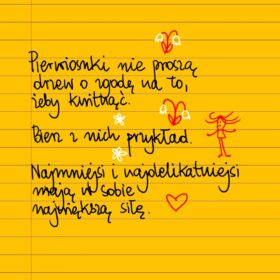 Pierwiosnki nie proszą
drzew o zgodę na to,
żeby kwitnąć.
Bierz z nich przykład.
Najmniejsi i najdelikatniejsi
mają w sobie
największą siłę.